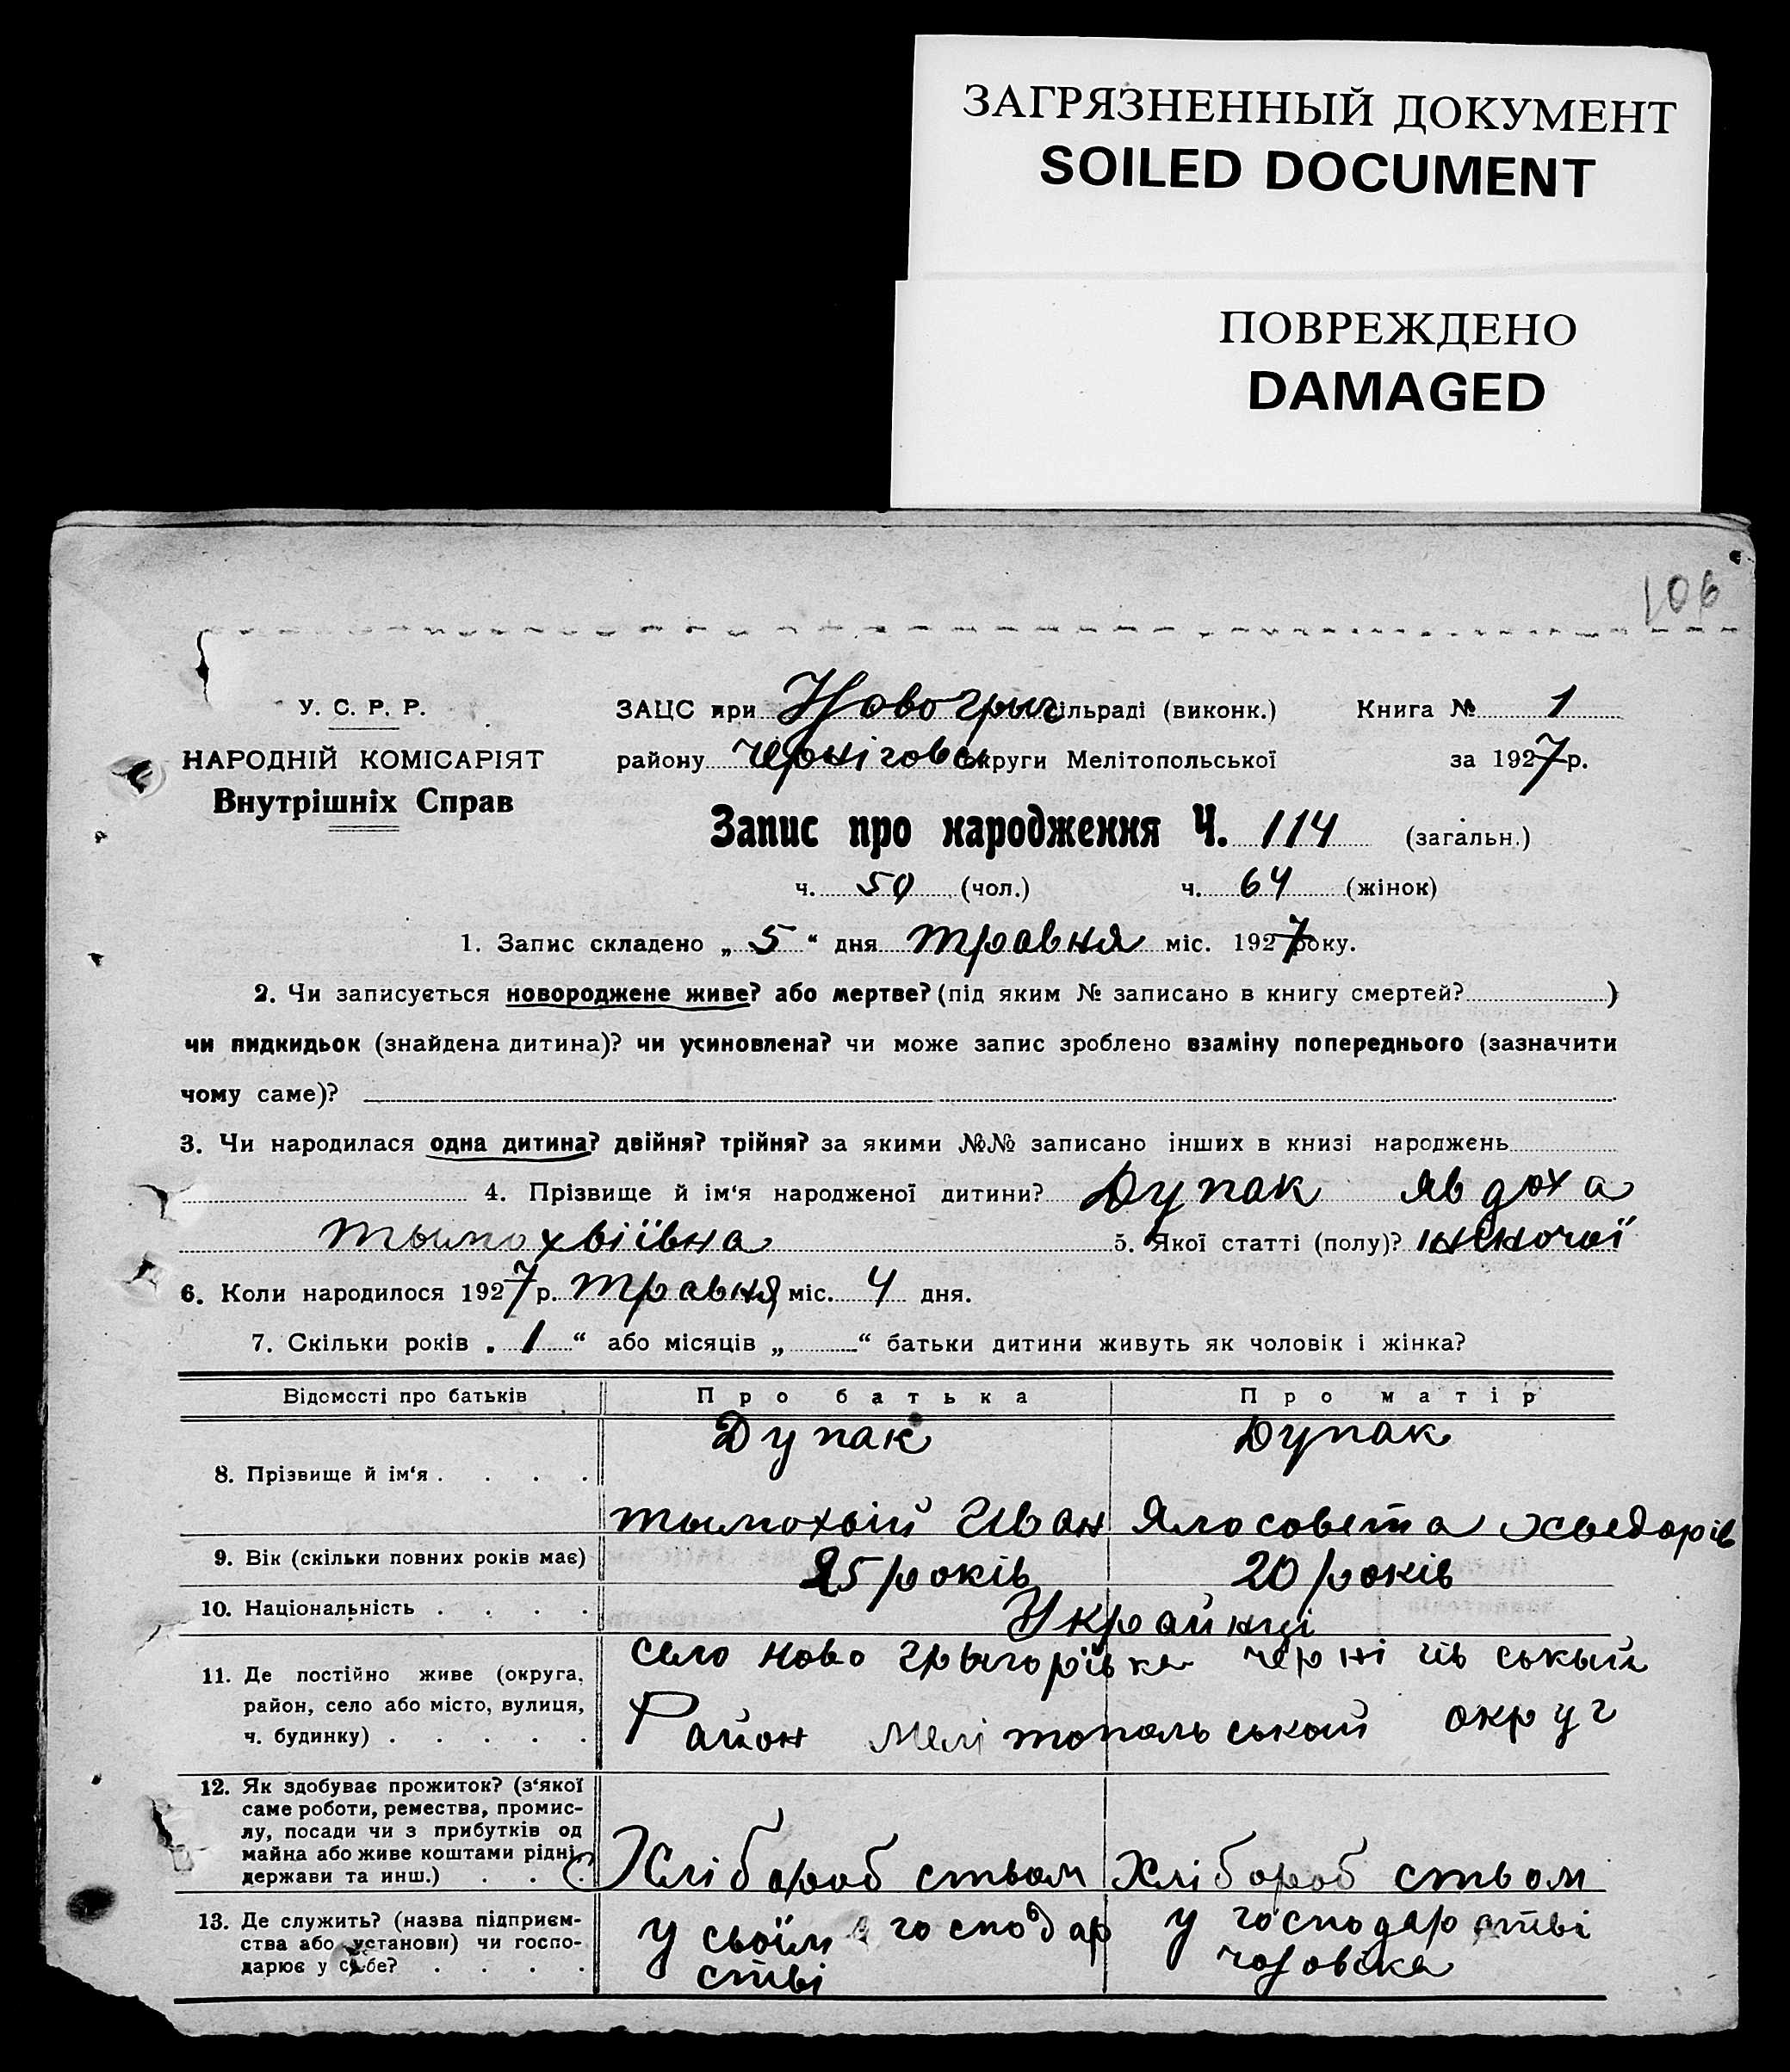 ЗАГРЯЗНЕННЫЙ ДОКУМЕНТ
SOILED DOCUMENT
ПОВРЕЖДЕНО
DAMAGED
106
У. С. Р. Р.
НАРОДНІЙ КОМІСАРІЯТ
Внутрішніх Справ
ЗАЦС при Новогрыг сільраді (виконк.) Книга № 1
району Черніговськ округи Мелітопольської за 1927 р.
Запис про народження Ч. 114 (загальн.)
ч. 50 (чол.) ч. 64 (жінок)
1. Запис складено „ 5 “ дня травня міс. 1927 року.
2. Чи записується новороджене живе? або мертве? (під яким № записано в книгу смертей? )
чи пидкидьок (знайдена дитина)? чи усиновлена? чи може запис зроблено взаміну попереднього (зазначити
чому саме)?
3. Чи народилася одна дитина? двійня? трійня? за якими №№ записано інших в книзі народжень
4. Прізвище й ім‘я народженої дитини? Дупак Явдоха
тымохвіївна 5. Якої статті (полу)? жіночої
6. Коли народилося 1927 р. травня міс. 4 дня.
7. Скільки років „ 1 “ або місяців „ “ батьки дитини живуть як чоловік і жінка?
Відомості про батьків Про батька Про матір
Дупак Дупак
8. Прізвище й ім‘я . . . .
тымохвій Иван Ялосовета Хведорів
9. Вік (скільки повних років має) 25 років 20 років
10. Національність . . . . Украйнці
11. Де постійно живе (округа, район, село або місто, вулиця, ч. будинку) . . . . .
село ново грыгорівка чернігівськый
Район Мелітопольськый округ
12. Як здобуває прожиток? (з‘якої
саме роботи, ремества, промис-
лу, посади чи з прибутків од
майна або живе коштами рідні,
держави та инш.) . . . Хліборобством Хліборобством
13. Де служить? (назва підприєм-
ства або установи) чи госпо-
дарює у себе? . . . .
у своїм господар
стві
у господарстві
чоловіка